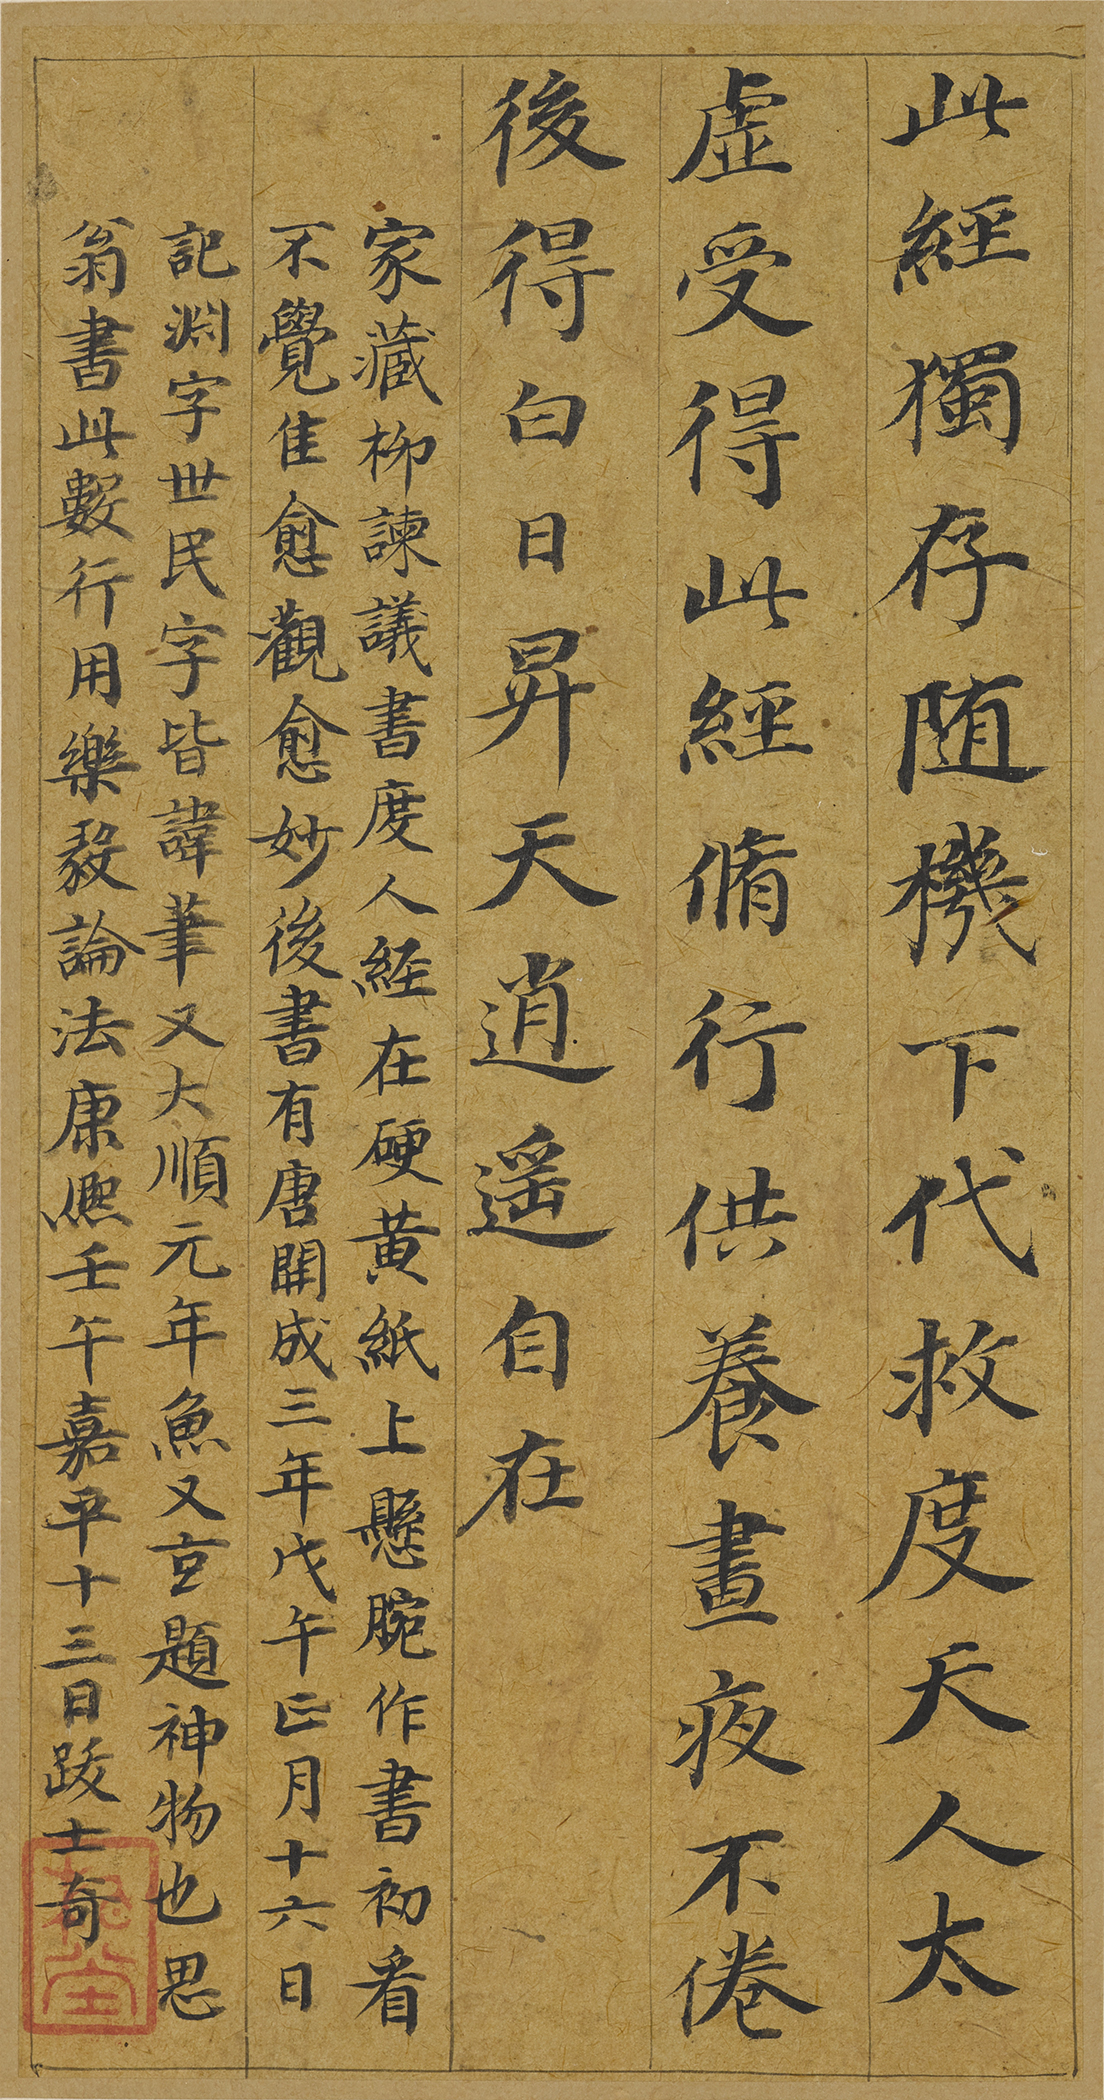 此經獨存随機下代救度天人太
虛受得此經脩行供養晝夜不倦
後得白日昇天逍遥自在
家藏柳諫議書度人經在硬黄紙上懸腕作書初看
不覺佳愈觀愈妙後書有唐開成三年戊午正月十六日
記渊字世民字皆諱筆又大順元年魚又玄題神物也思
翁書此數行用樂毅論法康熙壬午嘉平十三日跋士奇